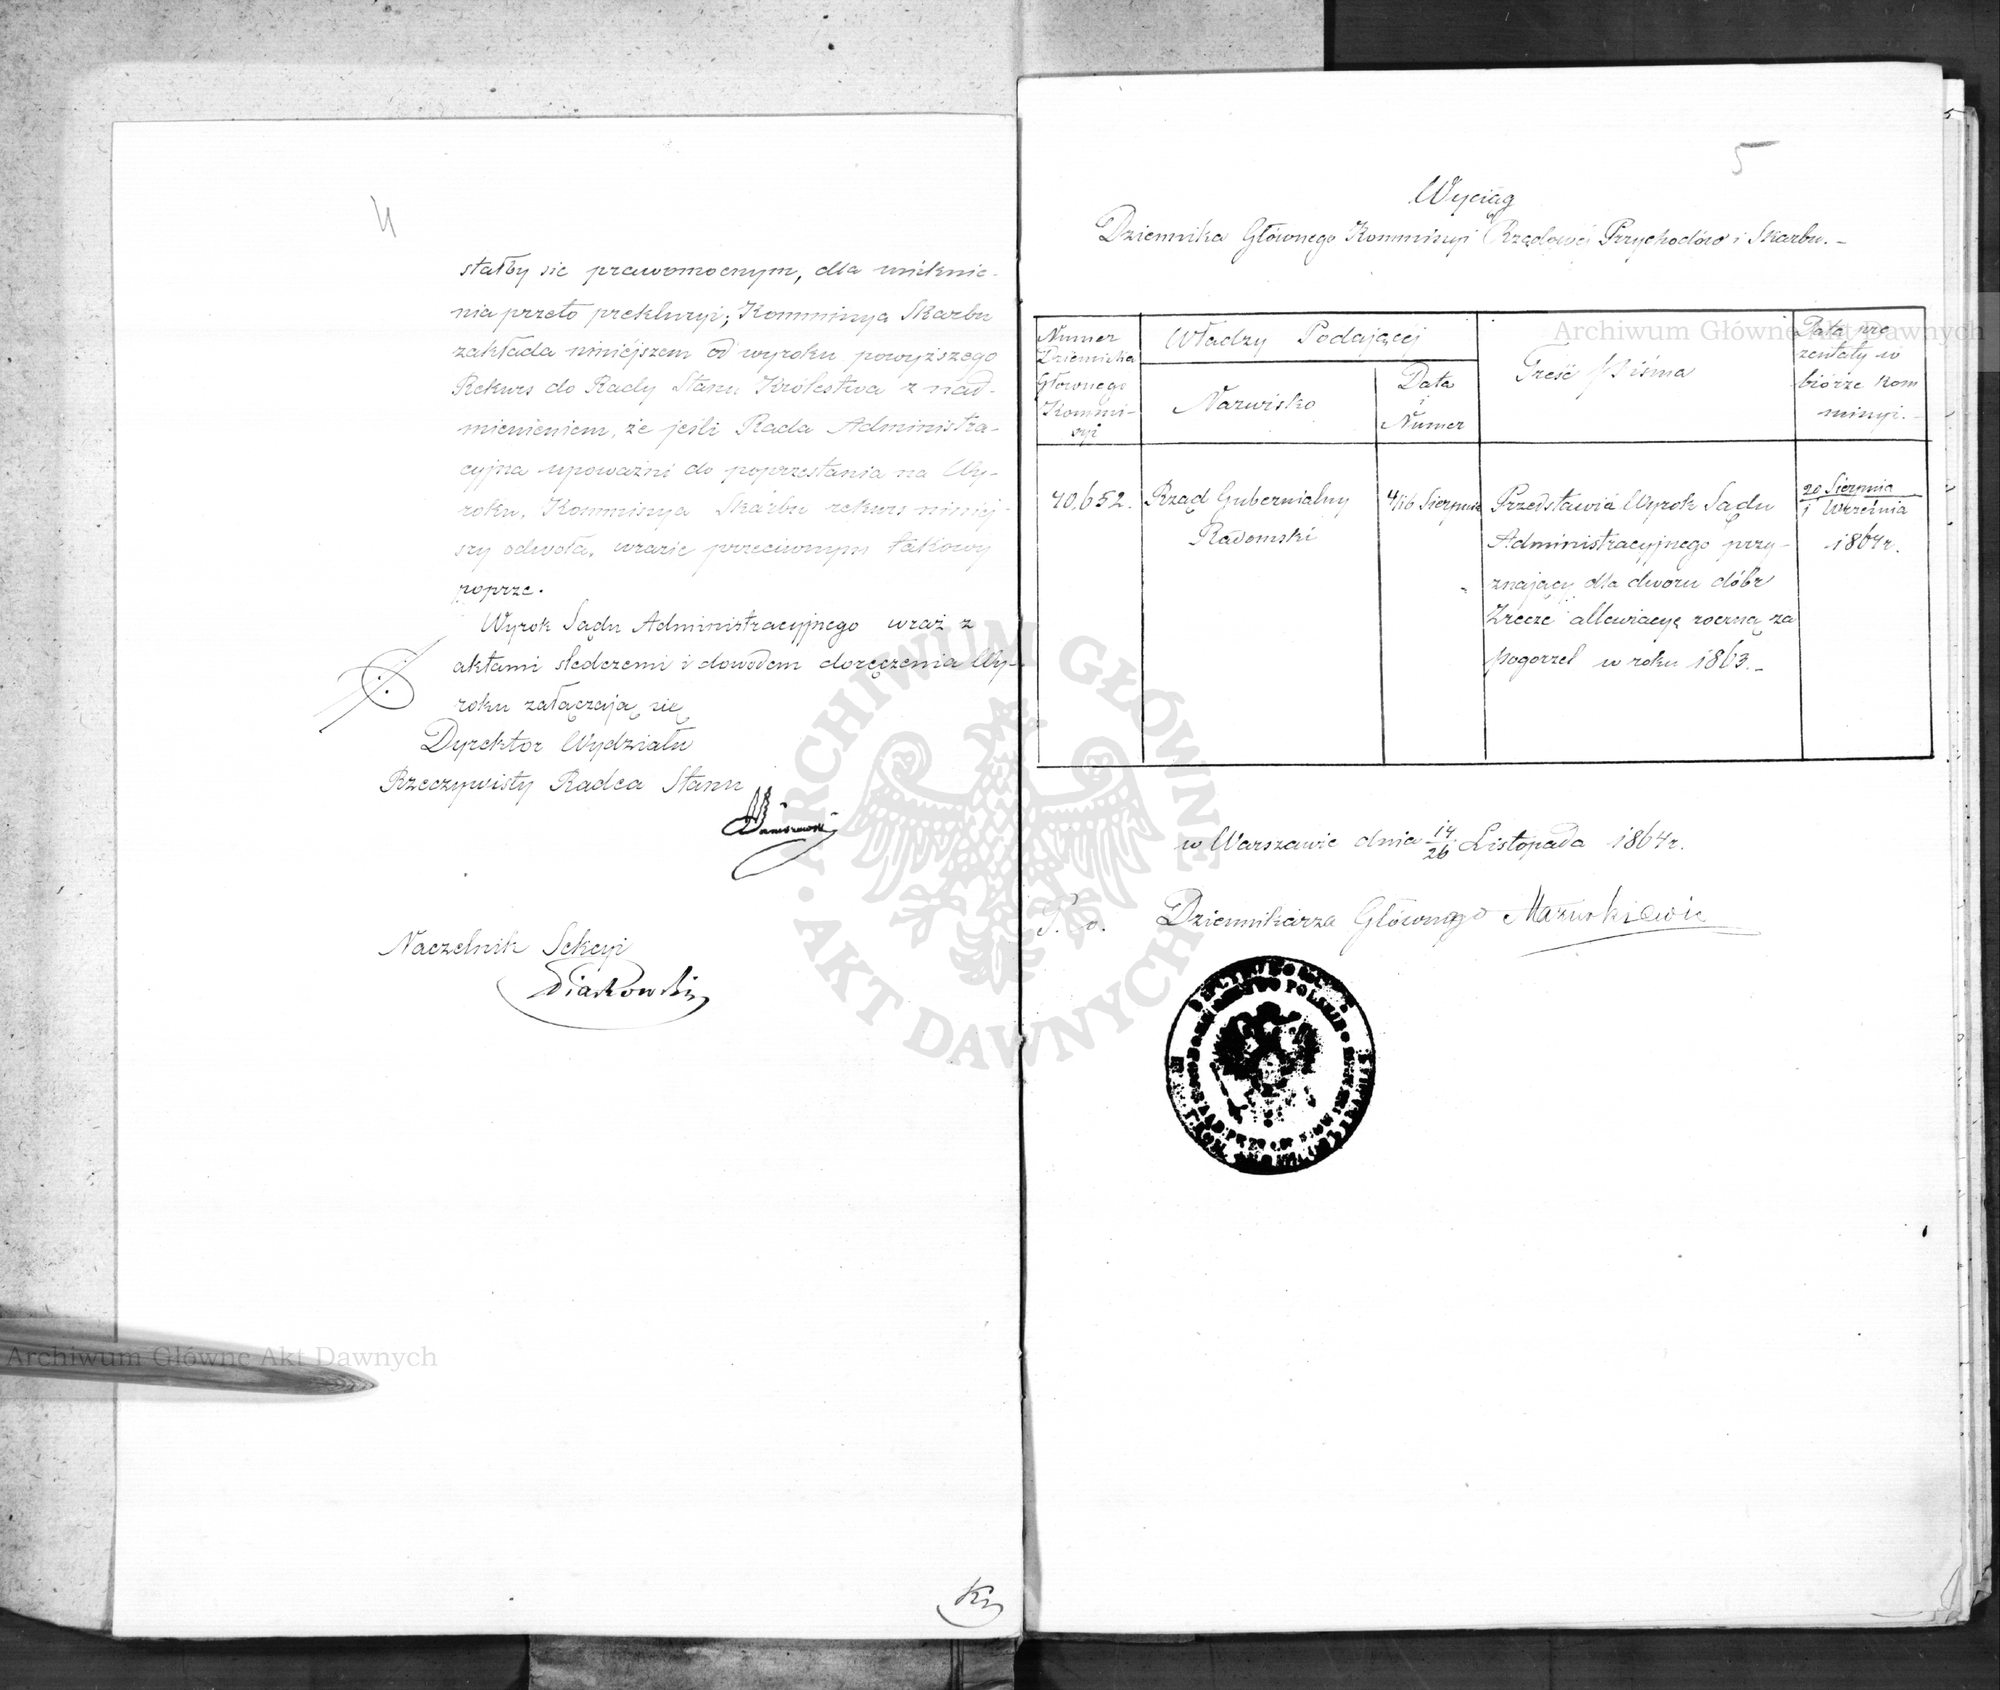 4
stałby się prawomocnym, dla uniknie-
nia przeto prekluzyi; Kommissya Skarbu
zakłada niniejszem od wyroku powyższego
Rekurs do Rady Stanu Królestwa z nad-
mienieniem, że jeśli Rada Administra-
cyjna upoważni do poprzestania na Wy-
roku, Kommissya Skarbu rekurs niniej-
szy odwoła, wrazie przeciwnym takowy
poprze.
Wyrok Sądu Administracyjnego wraz z
aktami śledczemi i dowodem doręczenia Wy-
roku załączają się
Dyrektor Wydziału
Rzeczywisty Radca Stanu
Naczelnik Sekcyi
5
Wyciąg
Dziennika Głównego Kommissyi Rządowéj Przychodów i Skarbu.-
Numer
Dziennika
Głownego
Kommis-
syi
Władzy Podającéj
Nazwisko
Data
i
Numer
Treść Pisma
Data pre
zentaty w
biórze Kom
missyi.-
40,652.
Rząd Gubernialny
Radomski
4/16 Sierpnia
Przedstawia Wyrok Sądu
Administracyjnego przy-
znający dla dworu dóbr
Zrecze allewiacyę roczną za
pogorzel w roku 1863.-
20 Sierpnia
1 Września
1864r.
w Warszawie dnia 14/26 Listopada 1864r.
P. o. Dziennikarza Głównego Mazurkiewicz
ARCHIWUM GŁÓWNE
AKT DAWNYCH
Archiwum Główne Akt Dawnych
Archiwum Główne Akt Dawnych